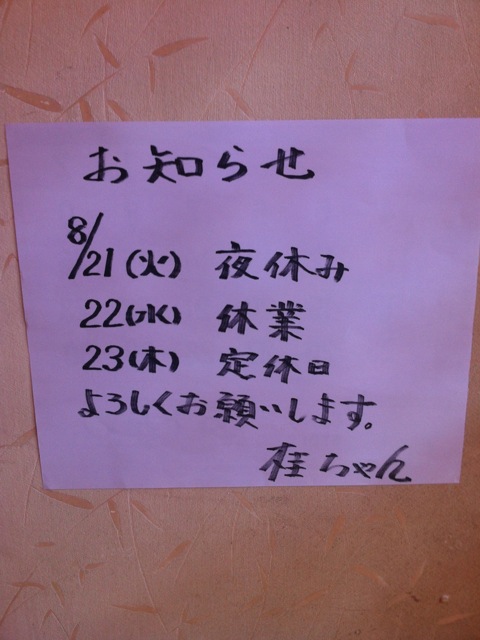 お知らせ
8/21(火) 夜休み
22(水) 休業
23(木) 定休日
よろしくお願いします。
桂ちゃん